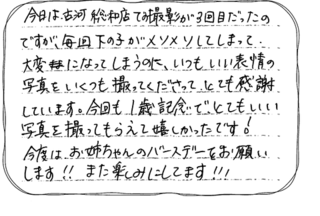 今日は古河総和店での撮影が3回目だったの
ですが、毎回下の子がメソメソしてしまって…
大変になってしまうのに、いつもいい表情の
写真をいくつも撮ってくださって、とても感謝
しています。今回も1歳記念で、とてもいい
写真を撮ってもらえて嬉しかったです!
今度はお姉ちゃんのバースデーをお願い
します!!また楽しみにしてます!!!